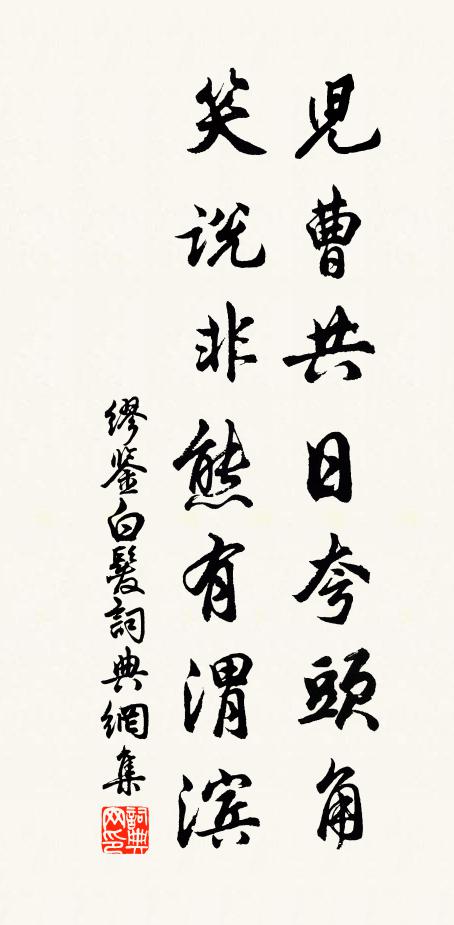 児曹共日夸頭角
笑说非熊有渭滨
繆鉴白髮詞典網集
詞典网印